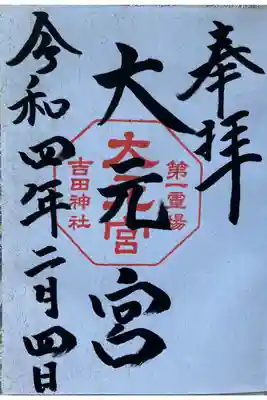 奉拝
大元宮
令和四年二月四日
第一霊場
大元宮
吉田神社